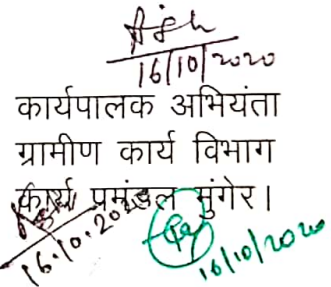 16/10/2020
कार्यपालक अभियंता
ग्रामीण कार्य विभाग
कार्य प्रमंडल मुंगेर।
16.10.2020
16/10/2020